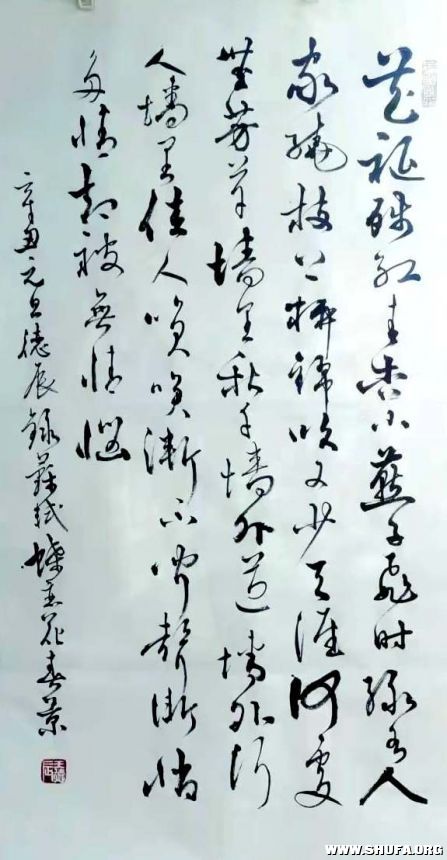 花褪残红青杏小燕子飞时绿水人
家绕枝上柳绵吹又少天涯何处
無芳草墙里秋千墙外道墙外行
人墙里佳人笑笑渐不闻声渐悄
多情却被無情恼
辛丑元旦德辰録蘇軾蝶恋花春景
WWW.SHUFA.ORG